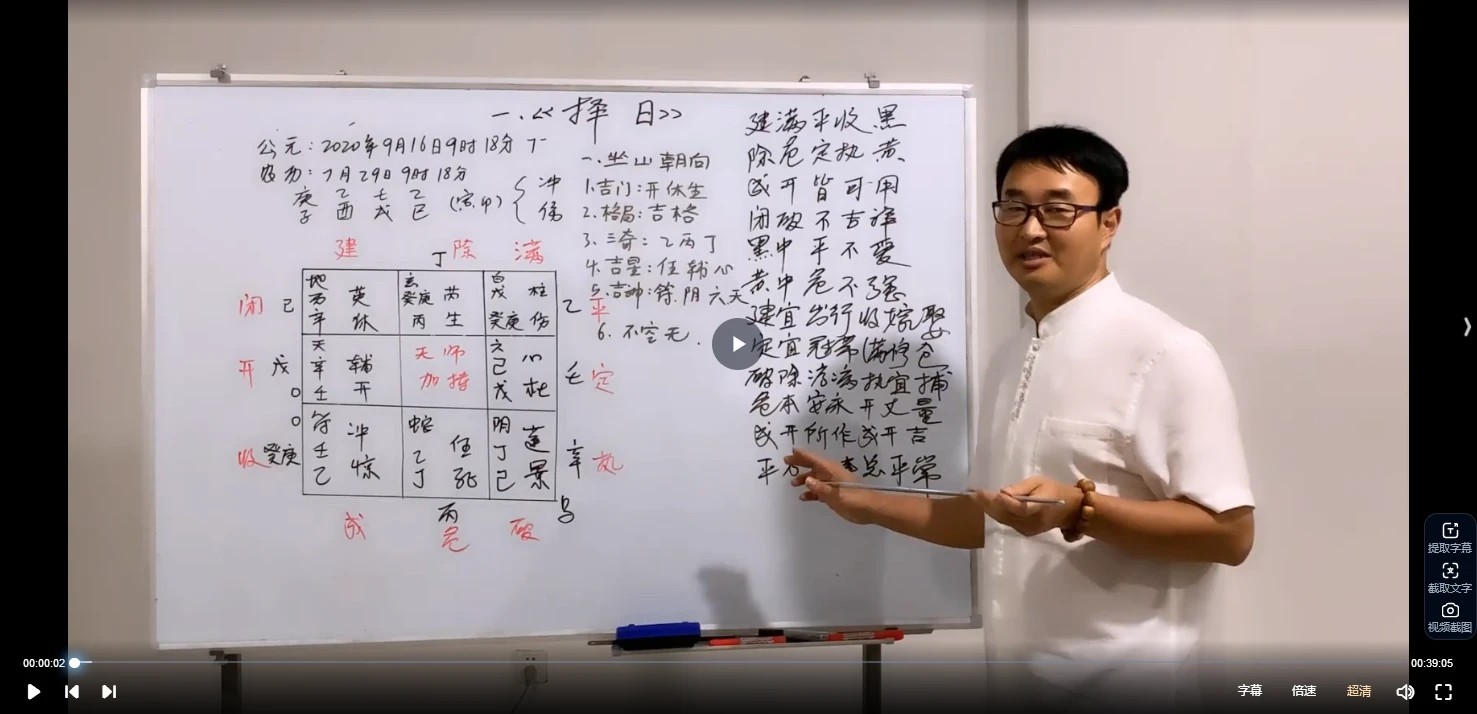 一.《择日》
公元：2020年9月16日9时18分 丁
农历：7月29日9时18分
庚 乙 壬 乙
子 酉 戌 巳
(寅.卯)
冲
伤
一.坐山朝向
1.吉门：开休生
2.格局：吉格
3.三奇：乙丙丁
4.吉星：任辅心
5.吉神：符.阴六天
6.不空亡.
建 丁 除 满
闭 己
地 英
丙
辛 休
玄
癸庚 芮
丙 生
白
戊 柱
癸庚 伤
乙 平
开 戊
天
辛 辅
壬 开
天师
加持
六
己 心
戊 杜
壬 定
收 癸庚
符
壬 冲
乙 惊
蛇
乙 任
丁 死
阴
丁 蓬
己 景
辛 执
成 丙 危 破 马
建满平收黑
除危定执黄
成开皆可用
闭破不吉祥
黑中平不变
黄中危不强
建宜出行收嫁娶
定宜冠带满修仓
破除治病执宜捕
危本安床开丈量
成开所作成开吉
平 总平常
提取字幕
截取文字
视频截图
00:00:02
00:39:05
字幕 倍速 超清